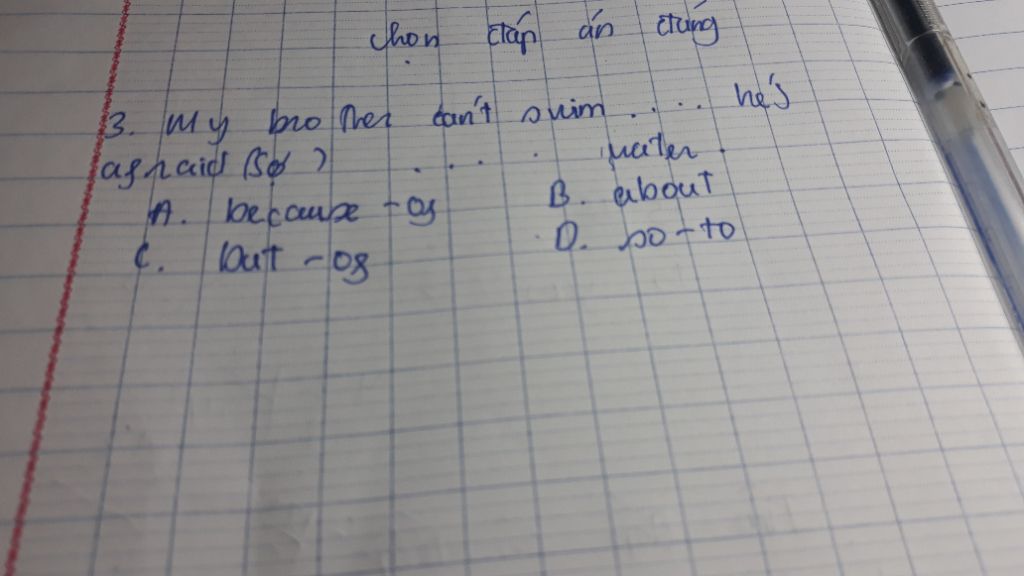 chọn đáp án đúng
3. My brother can't swim .... he's
afraid (sợ) .... water.
A. because - of B. about
C. but - of D. so - to